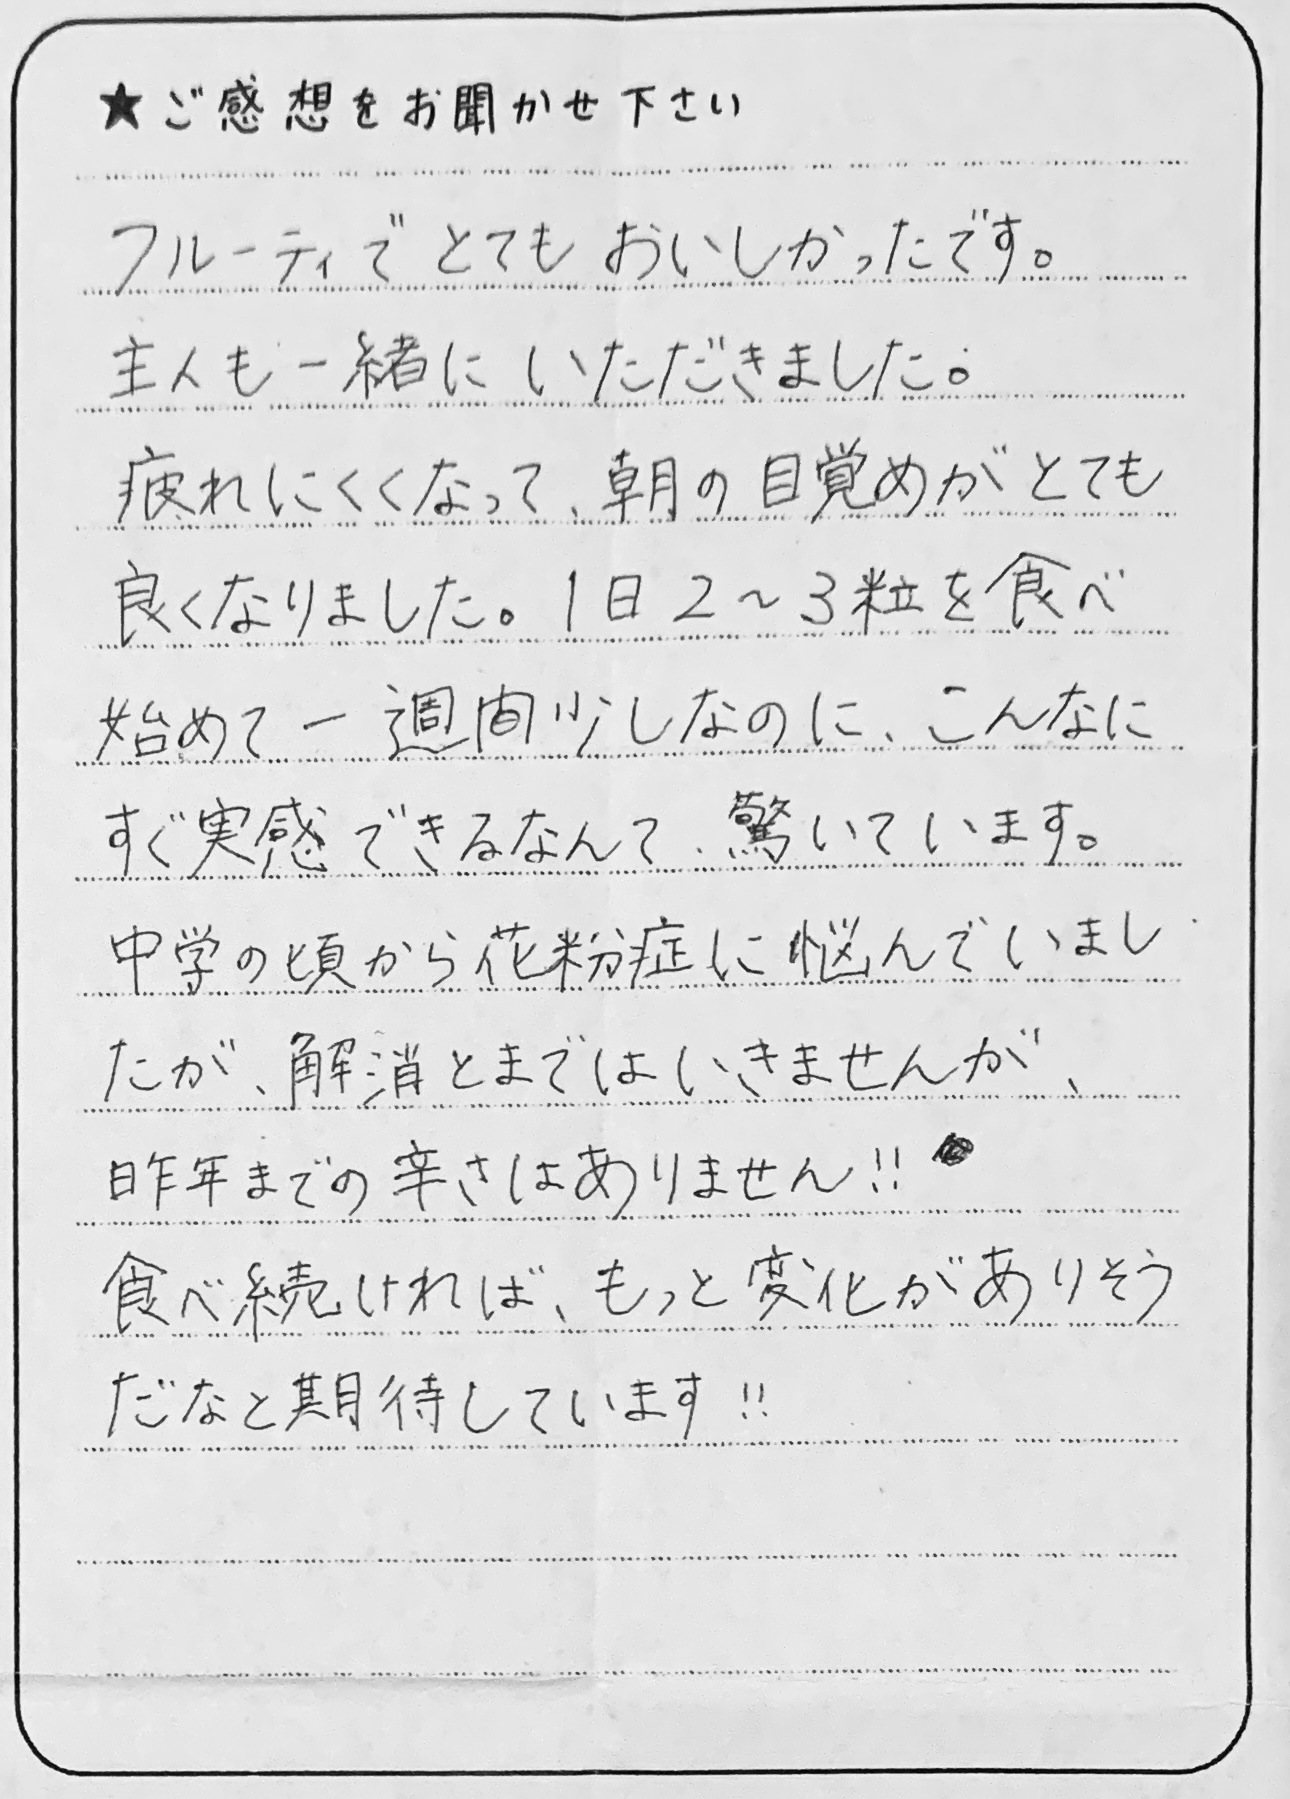 ★ご感想をお聞かせ下さい
フルーティでとてもおいしかったです。
主人も一緒にいただきました。
疲れにくくなって、朝の目覚めがとても
良くなりました。1日2～3粒を食べ
始めて一週間少しなのに、こんなに
すぐ実感できるなんて、驚いています。
中学の頃から花粉症に悩んでいまし
たが、解消とまではいきませんが、
昨年までの辛さはありません!!
食べ続ければ、もっと変化がありそう
だなと期待しています!!